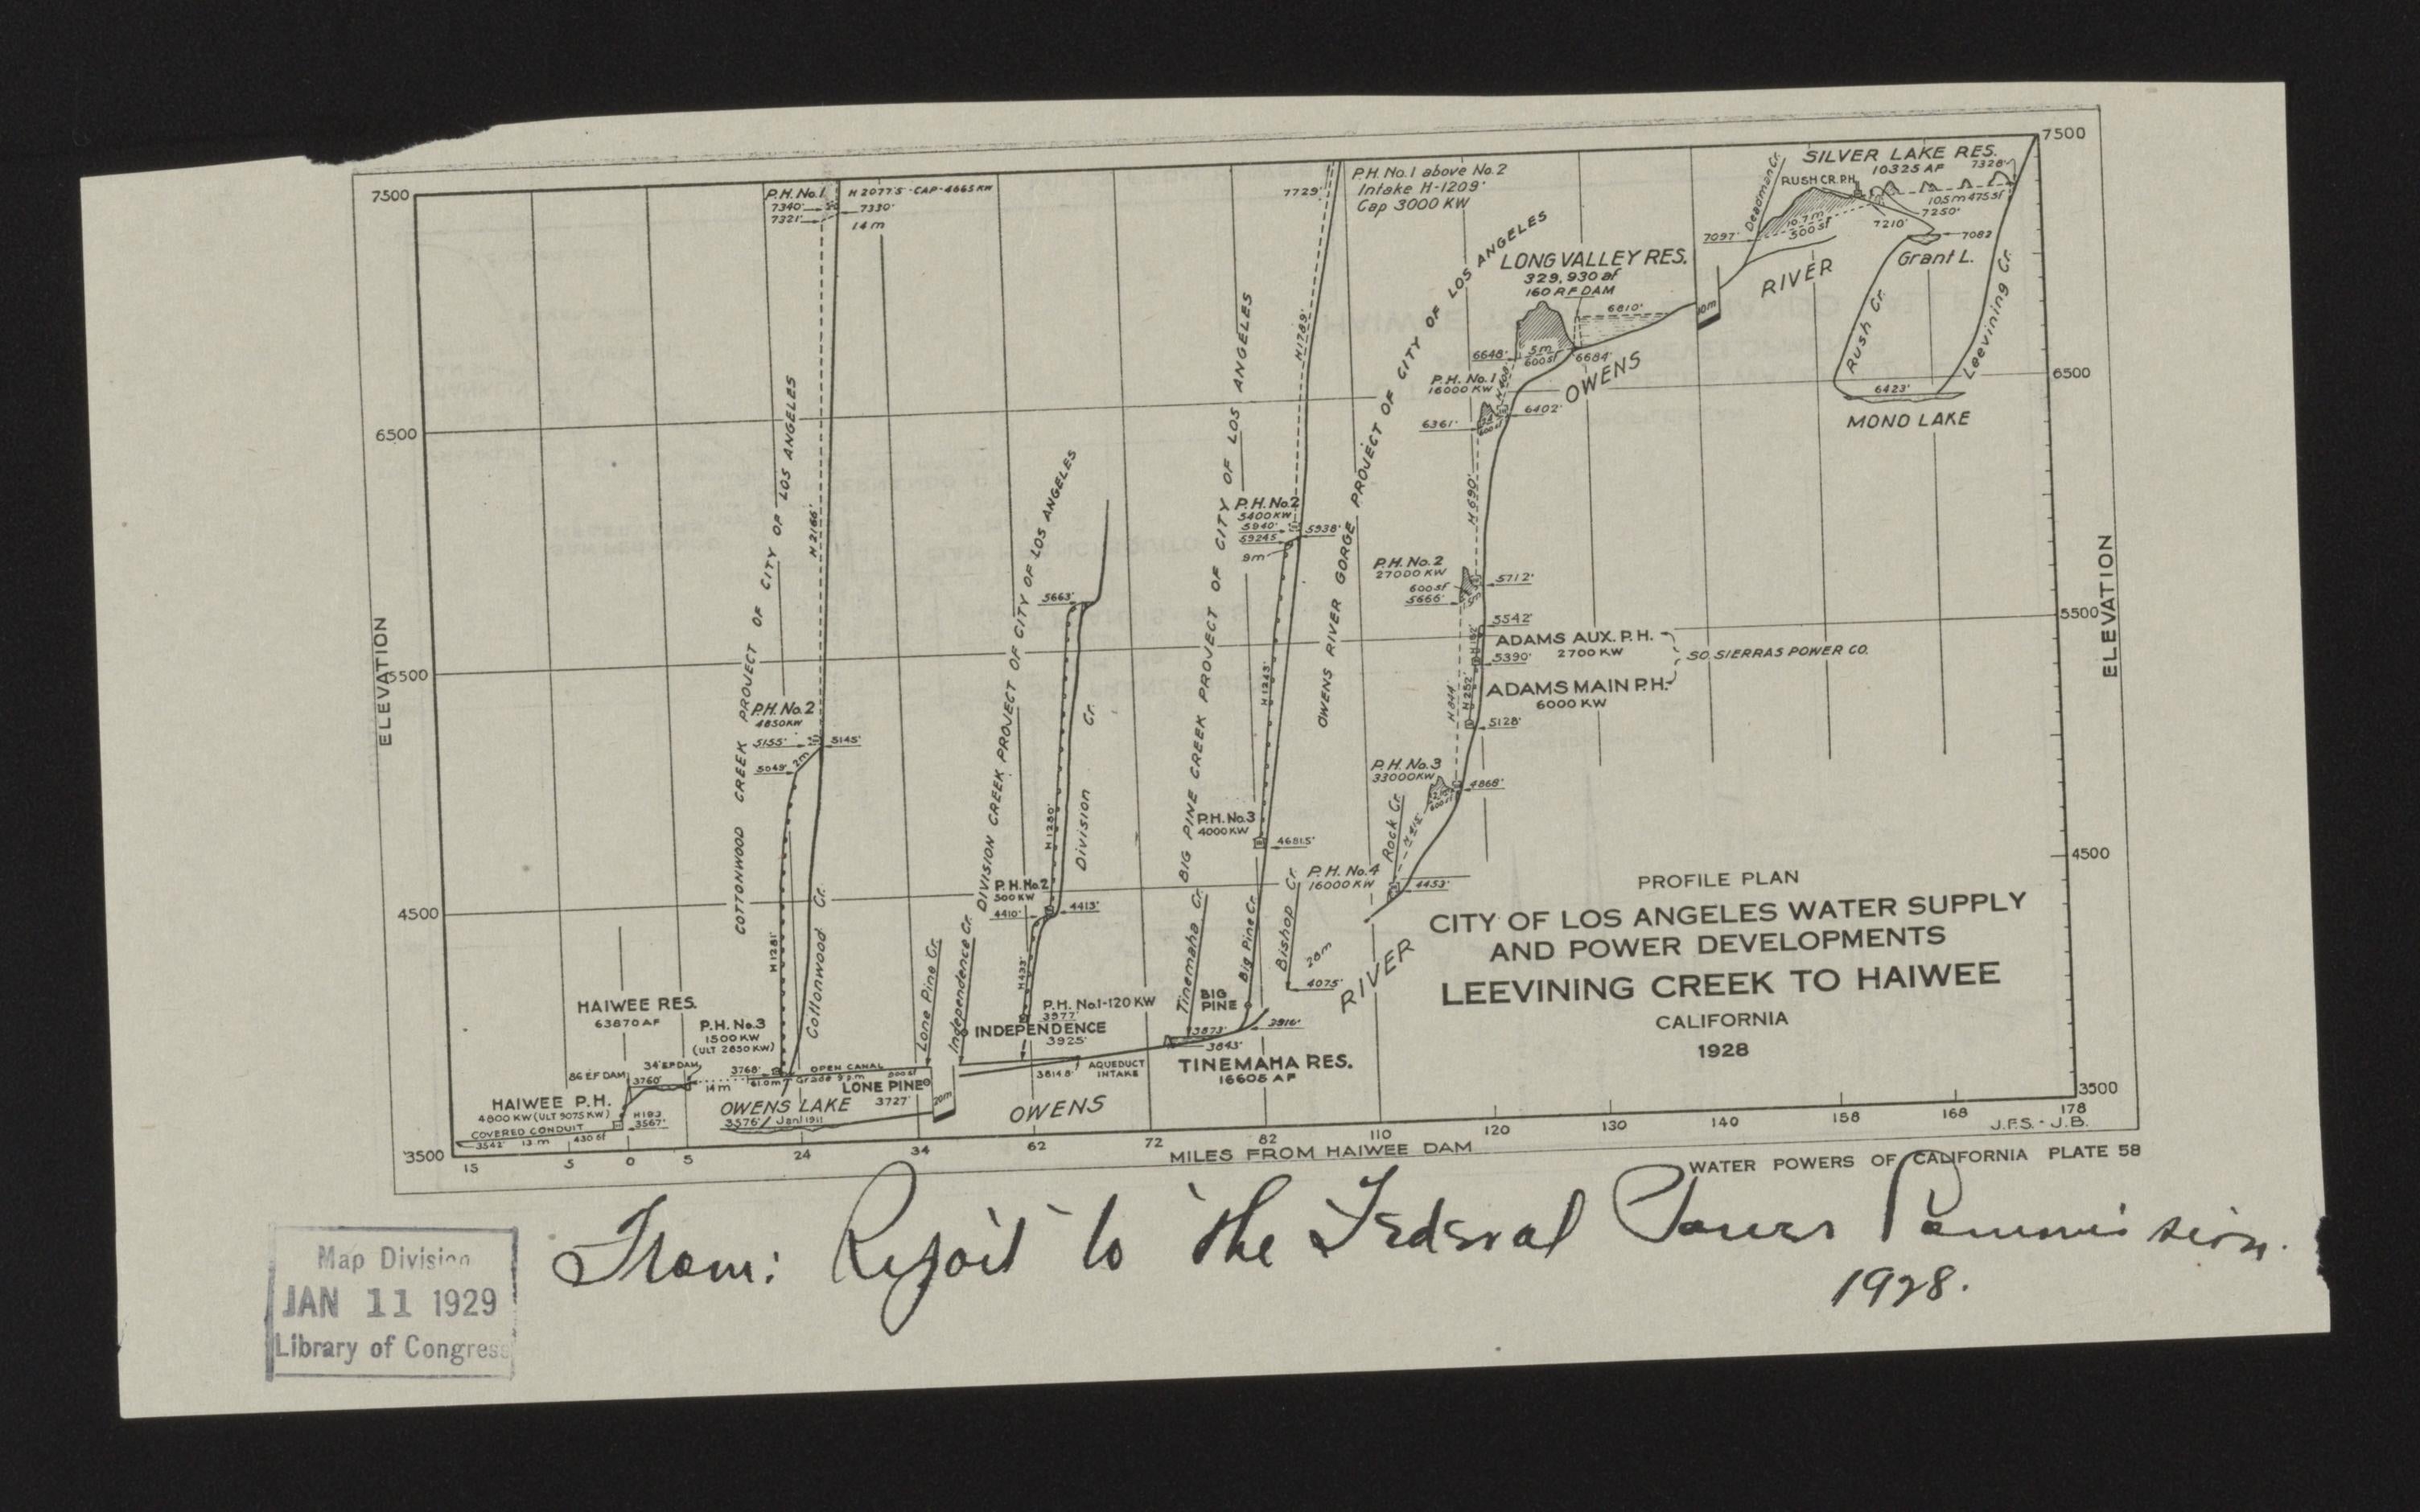 7500
P.H. No.1
7340'
7321'
H 2077.5 - CAP - 4665 KW
7330'
14 m
7729'
P.H. No.1 above No.2
Intake H-1209'
Cap 3000 KW
Deadman Cr.
SILVER LAKE RES.
10325 AF
7328'
RUSH CR. P.H.
10.5m 475sf
7250'
7210'
10.7m
500sf
7097'
7082
Grant L.
7500
LONG VALLEY RES.
329,930 af
160 RF DAM
6810'
10m
RIVER
Rush Cr.
Leevining Cr.
6648'
5m
600sf
6684'
OWENS
P.H. No.1
16000 KW
6402'
6361'
6423'
MONO LAKE
6500
6500
COTTONWOOD CREEK PROJECT OF CITY OF LOS ANGELES
H 2166'
DIVISION CREEK PROJECT OF CITY OF LOS ANGELES
BIG PINE CREEK PROJECT OF CITY OF LOS ANGELES
H 1789'
OWENS RIVER GORGE PROJECT OF CITY OF LOS ANGELES
H 690'
P.H. No.2
5400 KW
5940'
5924.5
5938'
9m
P.H. No.2
27000 KW
600sf
5666'
5712'
5663'
5542'
ADAMS AUX. P.H.
2700 KW
5390'
SO. SIERRAS POWER CO.
ADAMS MAIN P.H.
6000 KW
5128'
H 844'
H 252'
ELEVATION
5500
5500
ELEVATION
P.H. No.2
4850 KW
5155'
5145'
5049'
2m
H 1243'
Division Cr.
H 1250'
P.H. No.3
33000 KW
4868'
Rock Cr.
P.H. No.3
4000 KW
4681.5'
P.H. No.4
16000 KW
4453'
4500
4500
P.H. No.2
500 KW
4410'
4413'
H 1281'
Cottonwood Cr.
Lone Pine Cr.
Independence Cr.
H 433'
Tinemaha Cr.
Big Pine Cr.
Bishop Cr.
28m
4075'
RIVER
PROFILE PLAN
CITY OF LOS ANGELES WATER SUPPLY
AND POWER DEVELOPMENTS
LEEVINING CREEK TO HAIWEE
CALIFORNIA
1928
HAIWEE RES.
63870 AF
P.H. No.3
1500 KW
(ULT 2850 KW)
P.H. No.1-120 KW
3977'
INDEPENDENCE
3925'
BIG
PINE
3916'
3873'
3843'
TINEMAHA RES.
16605 AF
86 E.F. DAM
34 E.F. DAM
3760'
14 m
3768'
OPEN CANAL
61.0m
LONE PINE
3727'
3814.8'
AQUEDUCT
INTAKE
HAIWEE P.H.
4800 KW (ULT 9075 KW)
H 193
3567'
COVERED CONDUIT
3542'
13 m
430 sf
OWENS LAKE
3576' Jan 1911
20m
OWENS
3500
3500
15
5
0
5
24
34
62
72
82
110
120
130
140
158
168
178
J.F.S. - J.B.
MILES FROM HAIWEE DAM
WATER POWERS OF CALIFORNIA PLATE 58
From: Report to the Federal Power Commission.
1928.
Map Division
JAN 11 1929
Library of Congress